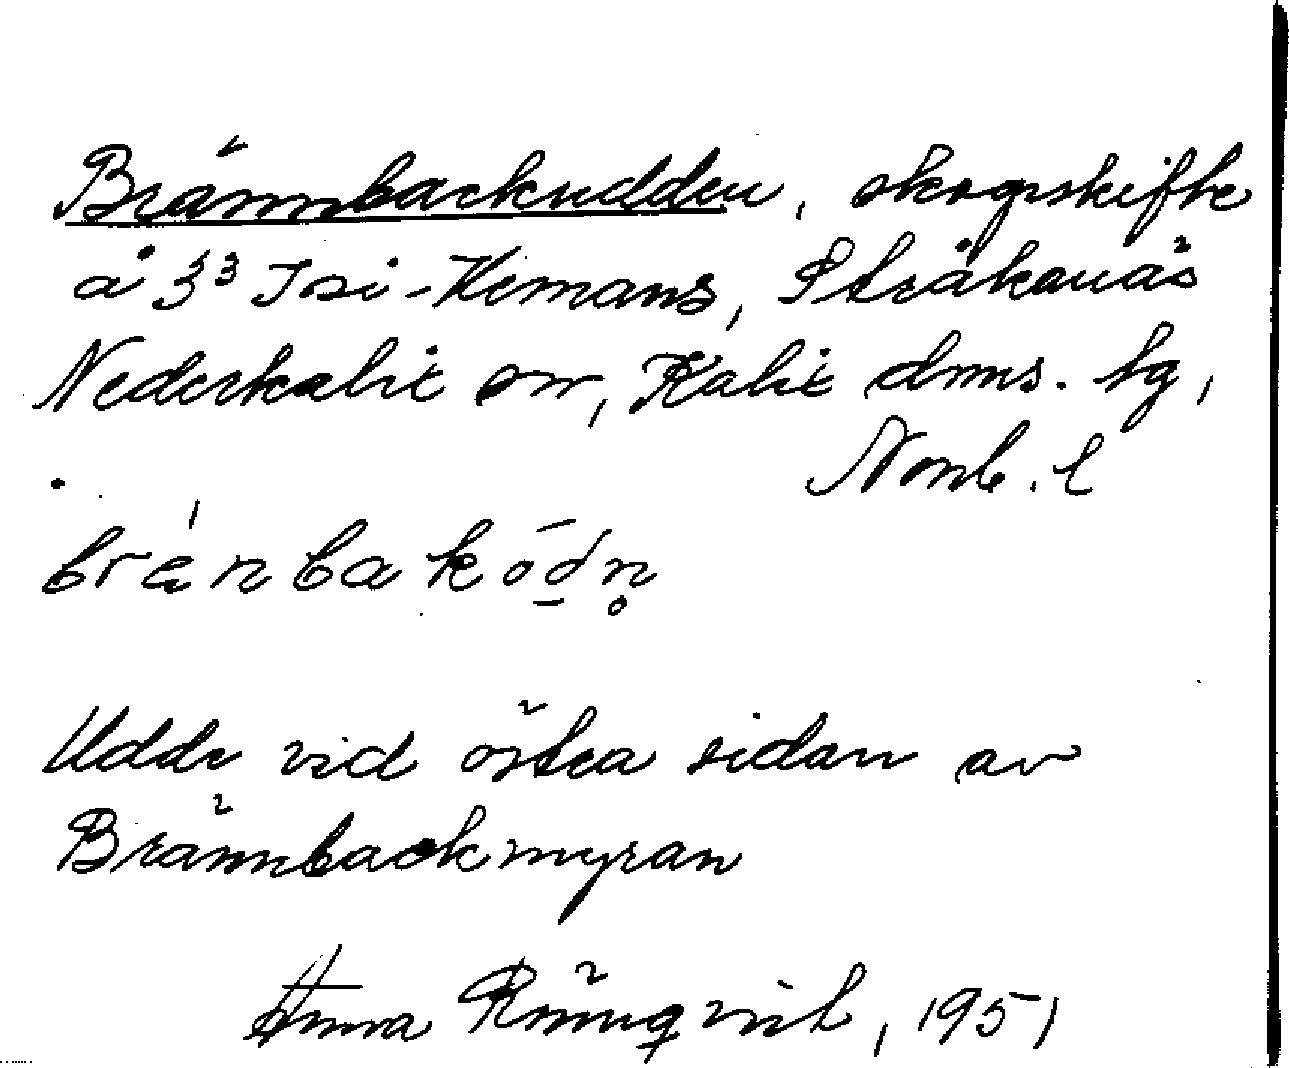 Brännbackudden, skogsskifte
å 3³ Josi-Hemans, Stråkanäs
Nederkalix sn, Kalix dms. tg,
Norrb. l
Udde vid östra sidan av
Brännbackmyran
Anna Rönnqvist, 1951